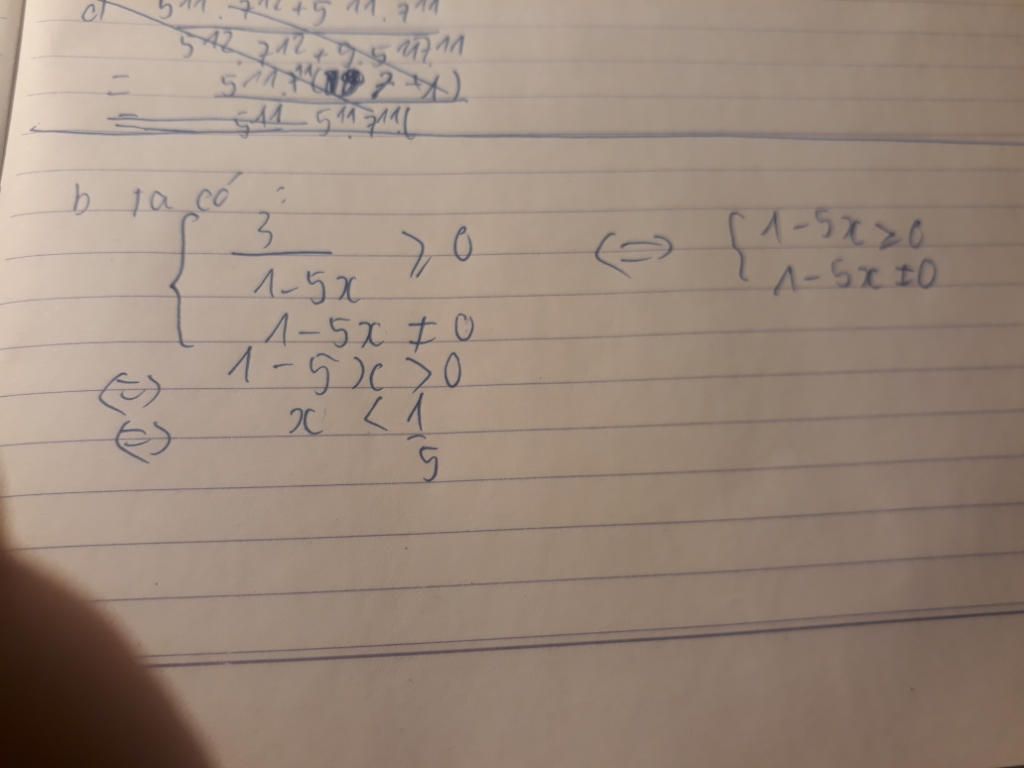 5¹¹.7¹²+5¹¹.7¹¹
5¹².7¹²+9.5¹¹7¹¹
=
5¹¹.7¹¹(
=
5¹¹ 5¹¹.7¹¹(
b ta có :
3
1-5x
⩾ 0
1-5x ≠ 0
<=>
1-5x ≥ 0
1-5x ≠ 0
<=> 1-5x > 0
<=> x < 1
5